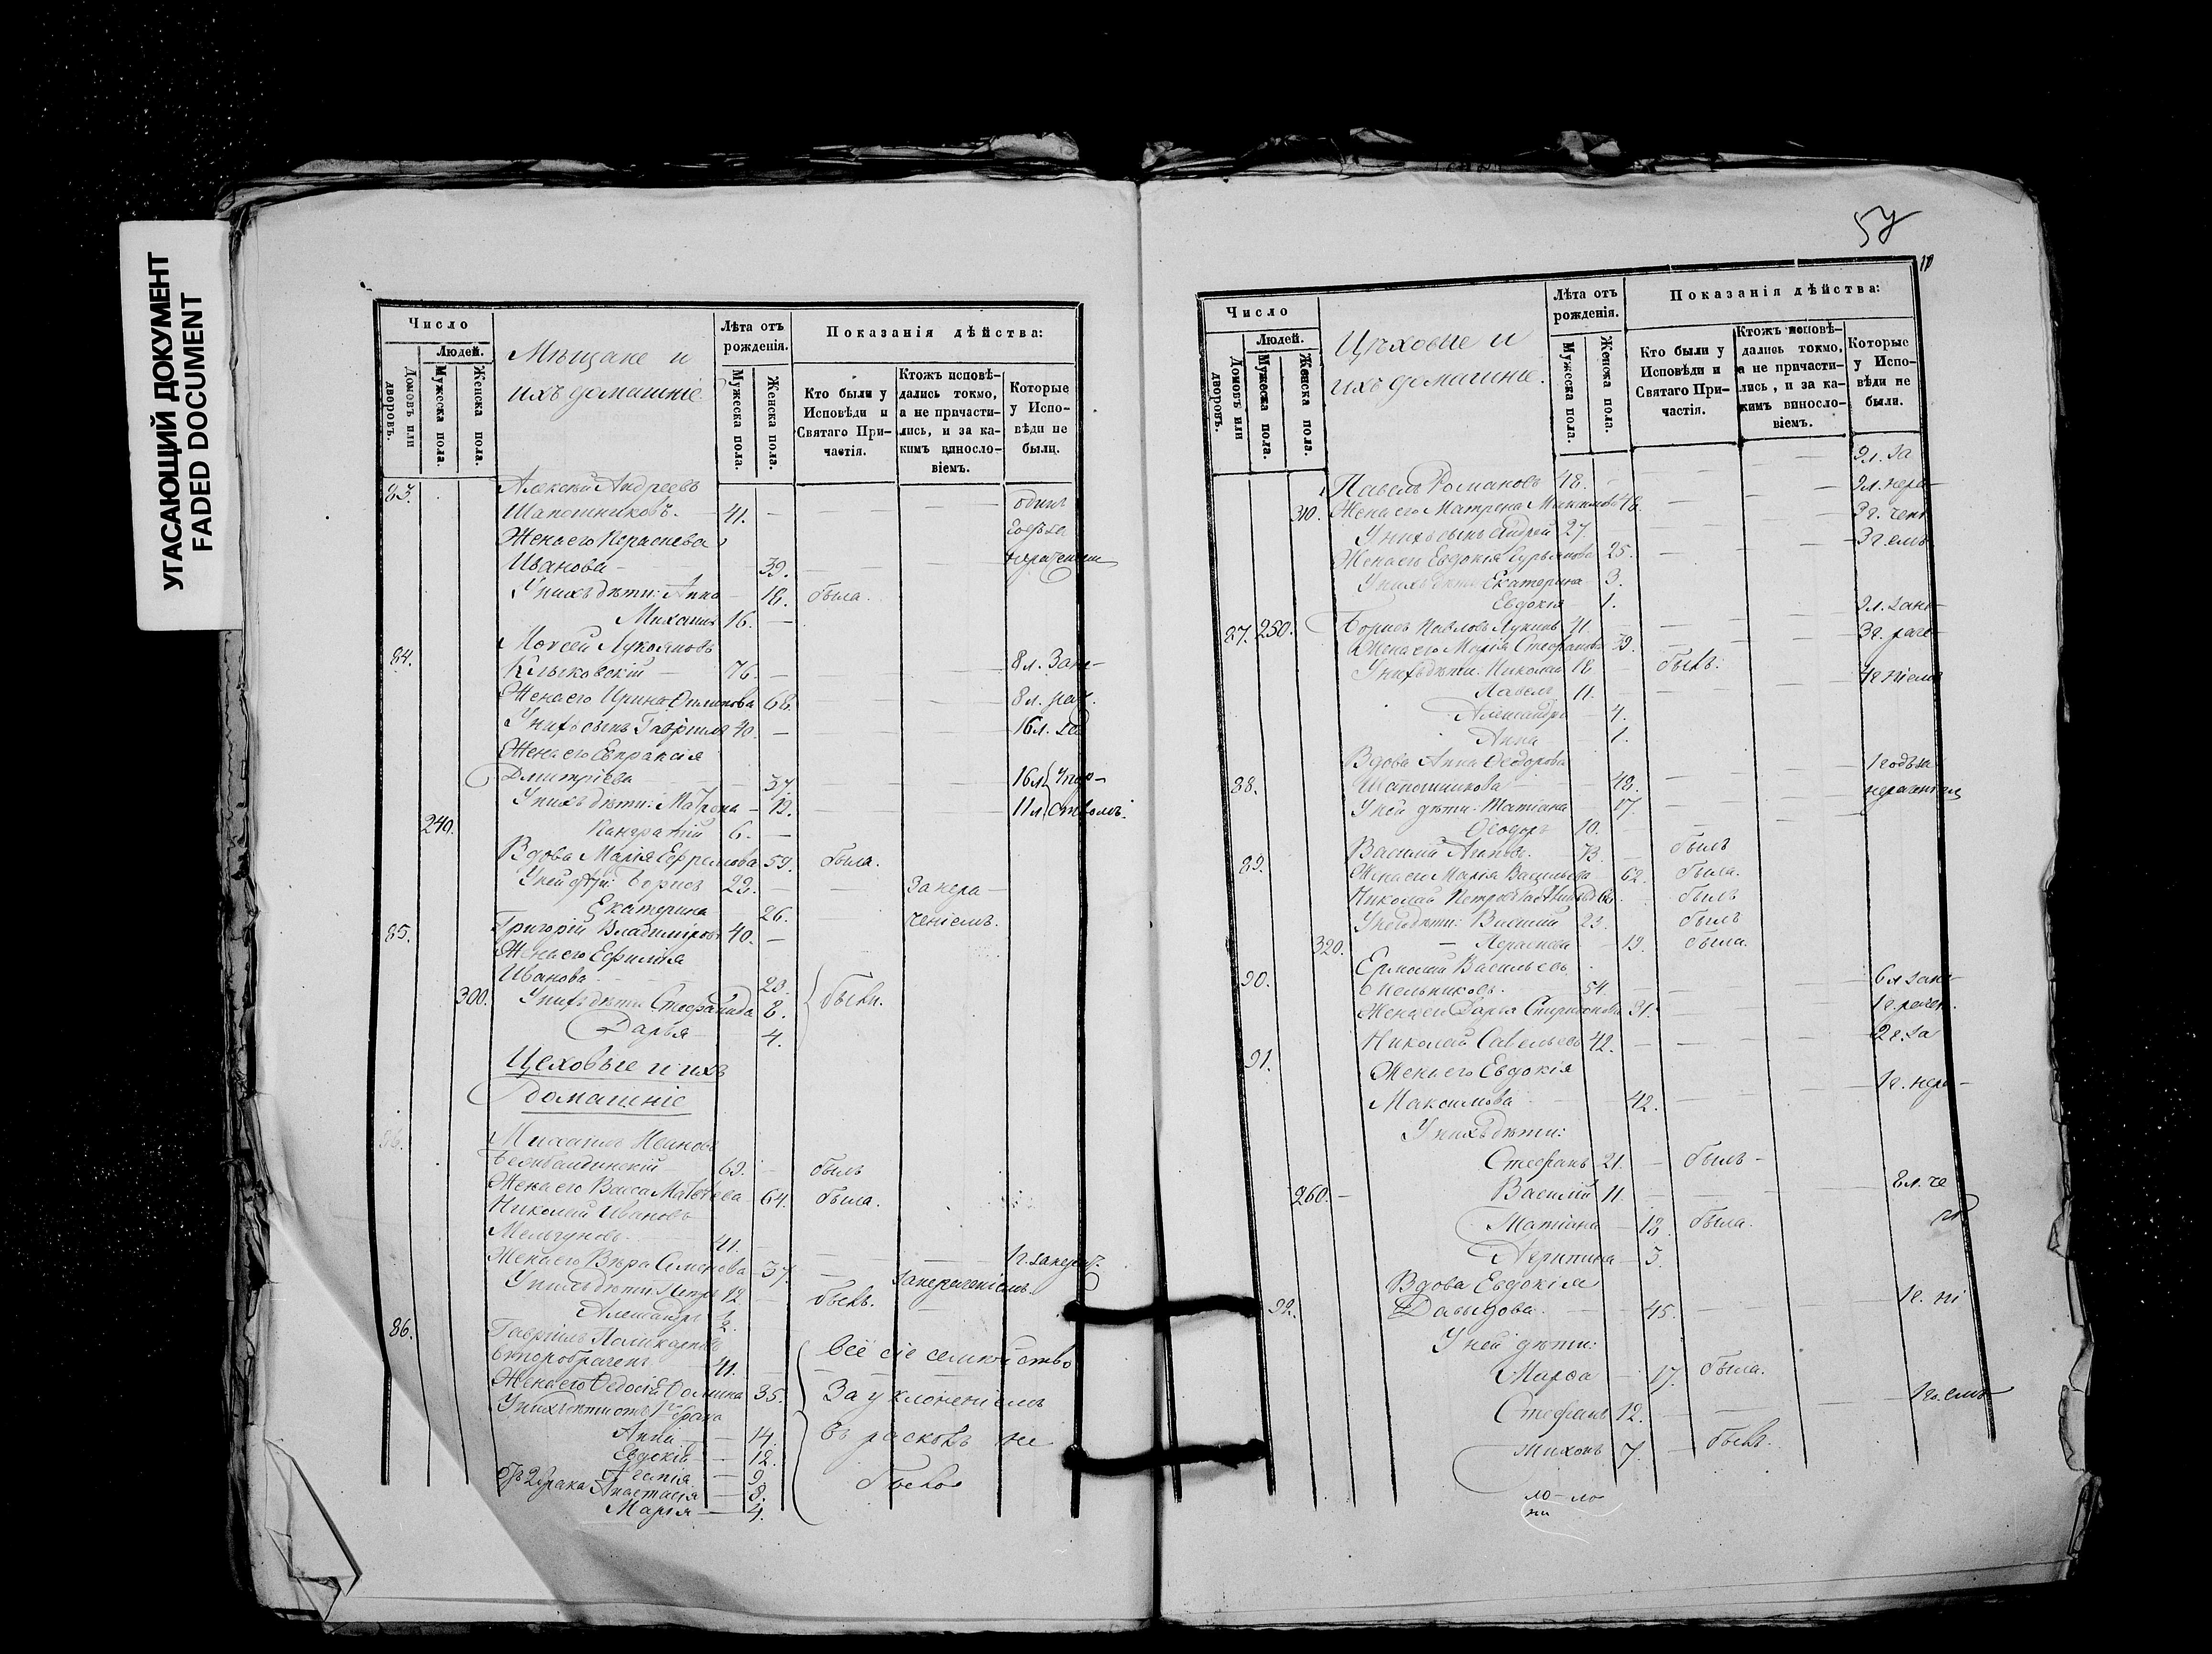 УГАСАЮЩИЙ ДОКУМЕНТ
FADED DOCUMENT
Число
Людей.
Домовъ или дворовъ.
Мужеска пола.
Женска пола.
Мѣщане и
ихъ домашніе.
Лѣта отъ рожденія.
Мужеска пола.
Женска пола.
Показанія дѣйства:
Кто были у Исповѣди и Святаго Причастія.
Ктожъ исповѣдались токмо, а не причастились, и за какимъ винословіемъ.
Которые у Исповѣди не были.
83. Алексѣй Андреевъ
Шапошниковъ. 41. — — — одинъ
Жена его Параскева годъ за
Иванова 39. — — нераченіем
У нихъ дѣти: Анна 18. была.
Михаилъ 16. —
84. Моѵсей Лукояновъ
76. — 8 л. За не-
Жена его Ирина 68. 8 л. рач.
У нихъ сынъ Гавріилъ 40. — 16 л.
Жена его Евпраксія
Дмитріева 37. 16 л. Упор-
У нихъ дѣти: Матрона 12. 11 л. ством:
240. Панкратій 6. —
Вдова Марія Ефремова 59. была.
У ней дѣти: Борисъ 29. — За нера-
Екатерина 26. ченіемъ.
85. Григорій Владиміровъ 40. —
Жена его Ефимія
Иванова 29. были.
300. У нихъ дѣти: Стефанида 8.
Дарья 4.
Цеховые и ихъ
домашніе
86. Михаилъ Ивановъ
69. — былъ
Жена его Васса Матвѣева 64. была.
Николай Ивановъ
Мельгуновъ. 41. —
Жена его Вѣра Семенова 37. — 1 г. за нерач.
У нихъ дѣти: Петръ 12 — были. за нераченіемъ.
Александръ 1/2.
86. Гавріилъ Поликарповъ
второбраченъ 41. Всё сіе семейство
Жена его Ѳедосія Ѳомина 35. За уклоненіемъ
У нихъ дѣти отъ 1го брака
Анна — 14. въ расколъ не
Евдокія — 12.
Агапія — 9. было
отъ 2 брака Анастасія — 8.
Марія — 4.
57
Число
Людей.
Домовъ или дворовъ.
Мужеска пола.
Женска пола.
Цѣховые и
ихъ домашніе.
Лѣта отъ рожденія.
Мужеска пола.
Женска пола.
Показанія дѣйства:
Кто были у Исповѣди и Святаго Причастія.
Ктожъ исповѣдались токмо, а не причастились, и за какимъ винословіемъ.
Которые у Исповѣди не были.
Павелъ Романовъ 48. — 9 л. За
310. Жена его Матрена 48. 9 л. нера-
У нихъ сынъ Андрей 27. 3 г. чені
Жена его Евдокія 25. 3 г. емъ
У нихъ дѣти: Екатерина 3.
Евдокія 1.
87. 250. Борисъ Павловъ Лукинъ 41. 9 л. за не-
Жена его Марія Стефанова 39. 3 г. раче-
У нихъ дѣти: Николай 18 — былъ. 4 г. ніемъ
Павелъ 11.
Александра 4.
Анна 1.
Вдова Анна Ѳеодорова
88. Шапошникова 48. 1 годъ за
У ней дѣти: Татіана 17. нераченіем
Ѳеодоръ 10.
89. Василій Агаповъ. 73. — былъ
Жена его Марія Васильева 62. была.
Николай Петровъ былъ
У него дѣти: Василій 23. былъ
320. — Параскева 19. была.
90. Ермолай Васильевъ
54. 6 л. за не-
Жена его Дарья Спиридонова 31. 1 г. рачен.
91. Николай Савельевъ 42. — 2 г. За
Жена его Евдокія
Максимова 42. 1 г. нера-
У нихъ дѣти:
Стефанъ 21. — былъ —
260. — Василій 11. 8 л. че
Татіана — 18. была.
— 3.
Вдова Евдокія
92. Давыдова. 45. — 1 г. ні
У ней дѣти:
Марѳа — 17. была.
Стефанъ 12. — 1 го. емъ
Тихонъ 7. — былъ.